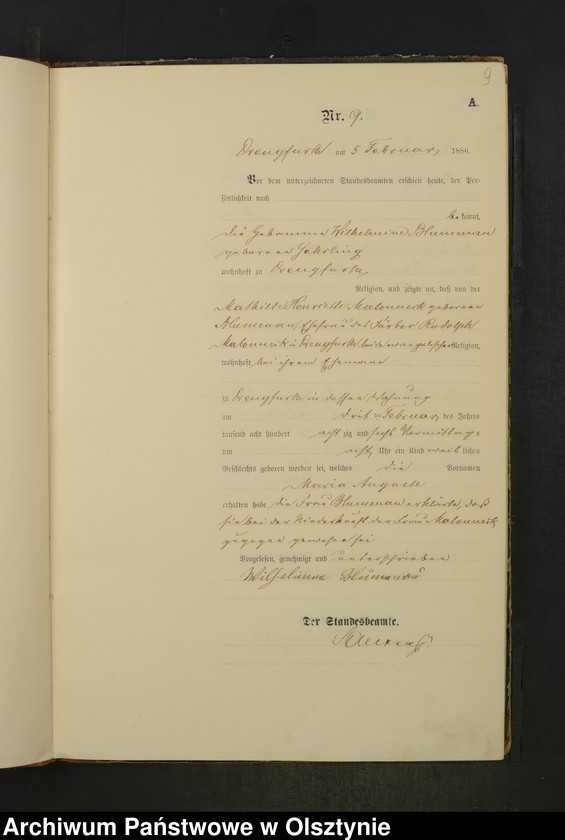 9
A.
Nr. 9.
Drengfurth am 5 Februar 1886.
Vor dem unterzeichneten Standesbeamten erschien heute, der Per-
sönlichkeit nach
bekannt,
die Hebamme Wilhelmine Blumenau
geborene
wohnhaft zu Drengfurth,
Religion, und zeigte an, daß von der
Mathilde Henriette Malonneck geborene
Blumenau, Ehefrau des Färber Rudolph
Malonneck in Drengfurth beide evangelischer Religion,
wohnhaft bei ihrem Ehemann
zu Drengfurth in dessen Wohnung
am dritten Februar des Jahres
tausend acht hundert acht zig und sechs Vormittags
um acht Uhr ein Kind weiblichen
Geschlechts geboren worden sei, welches die Vornamen
Maria Auguste
erhalten habe die Frau Blumenau erklärte, daß
sie bei der Niederkunft der Frau Malonneck
zugegen gewesen sei
Vorgelesen, genehmigt und unterschrieben
Wilhelmine Blumenau
Der Standesbeamte.
Archiwum Państwowe w Olsztynie